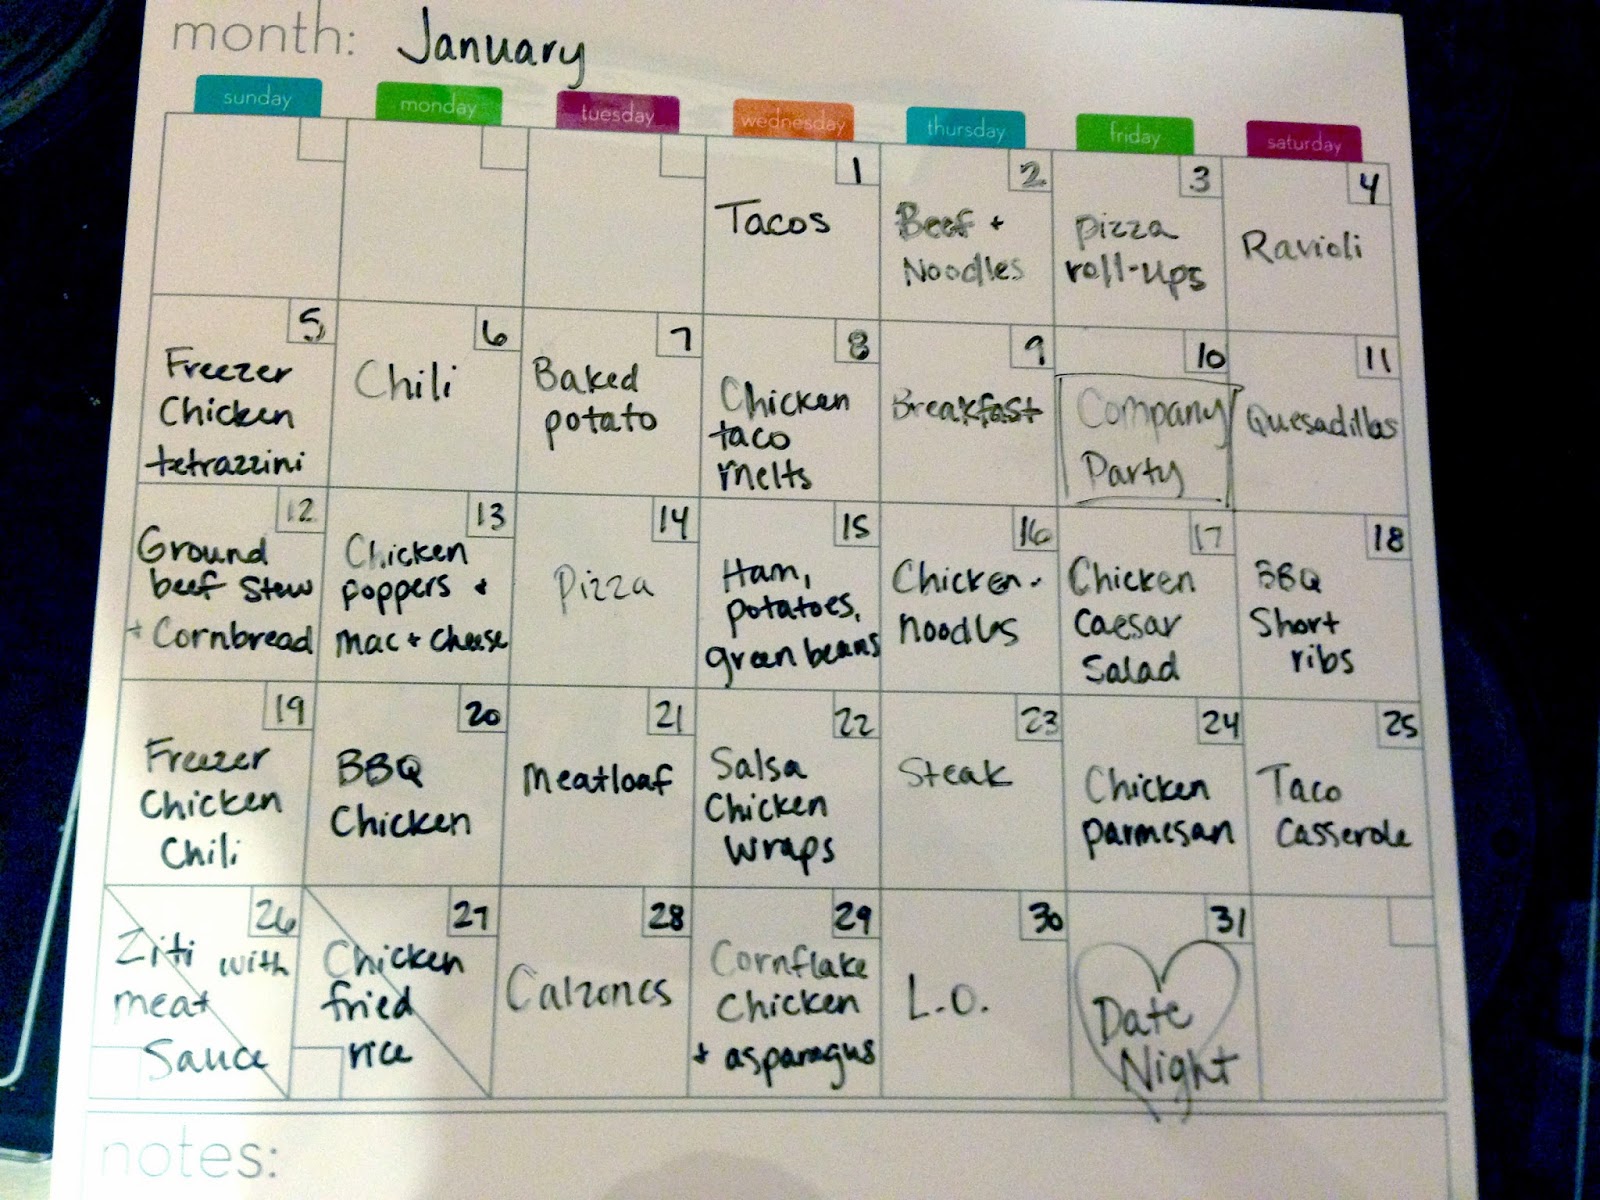 month: January
sunday monday tuesday wednesday thursday friday saturday
1 2 3 4
Tacos
Beef +
Noodles
pizza
roll-ups
Ravioli
5 6 7 8 9 10 11
Freezer
Chicken
tetrazzini
Chili
Baked
potato
Chicken
taco
melts
Breakfast
Company
Party
Quesadillas
12 13 14 15 16 17 18
Ground
beef Stew
+ Cornbread
Chicken
poppers +
mac + cheese
Pizza
Ham,
potatoes,
green beans
Chicken.
noodles
Chicken
Caesar
Salad
BBQ
Short
ribs
19 20 21 22 23 24 25
Freezer
Chicken
Chili
BBQ
Chicken
Meatloaf
Salsa
Chicken
Wraps
Steak
Chicken
parmesan
Taco
Casserole
26 27 28 29 30 31
Ziti with
meat
Sauce
Chicken
fried
rice
Calzones
Cornflake
Chicken
+ asparagus
L.O.
Date
Night
notes: